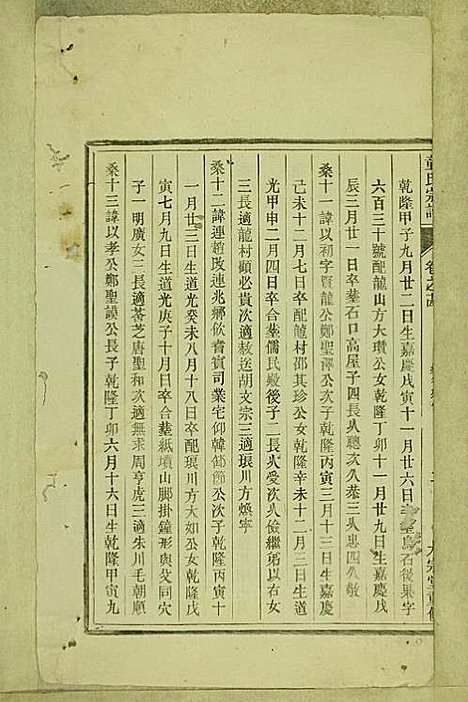 乾隆甲子九月廿二日生嘉慶戊寅十一月廿六日卒墓烏石後果字
六百三十號配龍山方大瓚公女乾隆丁卯十一月廿九日生嘉慶戊
辰三月廿一日卒墓石口高屋子四長人聰次人恭三人忠四人敬
桑十一諱以初字賢龍公鄭聖澤公次子乾隆丙寅三月十三日生嘉慶
己未十二月七日卒配龍村邵其珍公女乾隆辛未十二月三日生道
光甲申二月四日卒合墓儒民殿後子二長人受次人儉繼弼以右女
三長適龍村顯必貴次適赦送胡文宗三適琅川方煥寧
桑十二諱連趙改連兆鄉飲賓司業宅仰韓公次子乾隆丙寅十
一月廿三日生道光癸未八月十八日卒配琅川方大如公女乾隆戊
寅七月九日生道光庚子十月日卒合墓紙墳山脚掛鐘形與父同穴
子一明廣女三長適芝唐聖和次適無求周亨虎三適朱川毛朝順
桑十三諱以孝公鄭聖謨公長子乾隆丁卯六月十六日生乾隆甲寅九